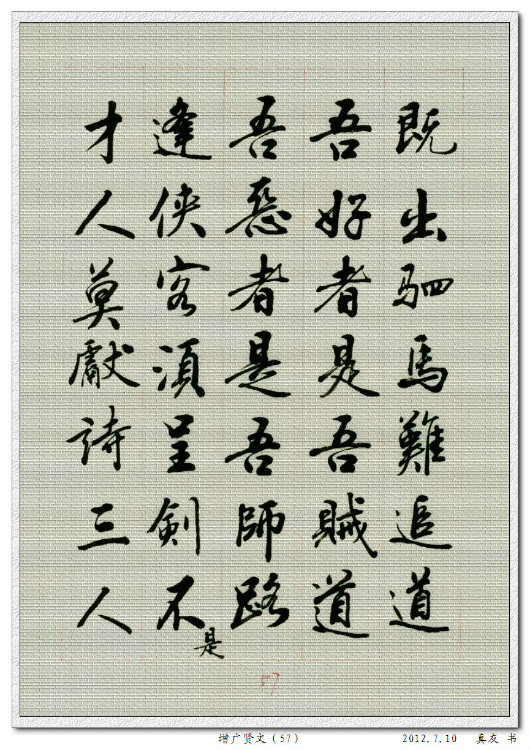 既出駟馬難追道
吾好者是吾賊道
吾惡者是吾師路
逢俠客須呈劍不
是
才人莫獻詩三人
57
增广贤文（57）
2012.7.10 真友 书